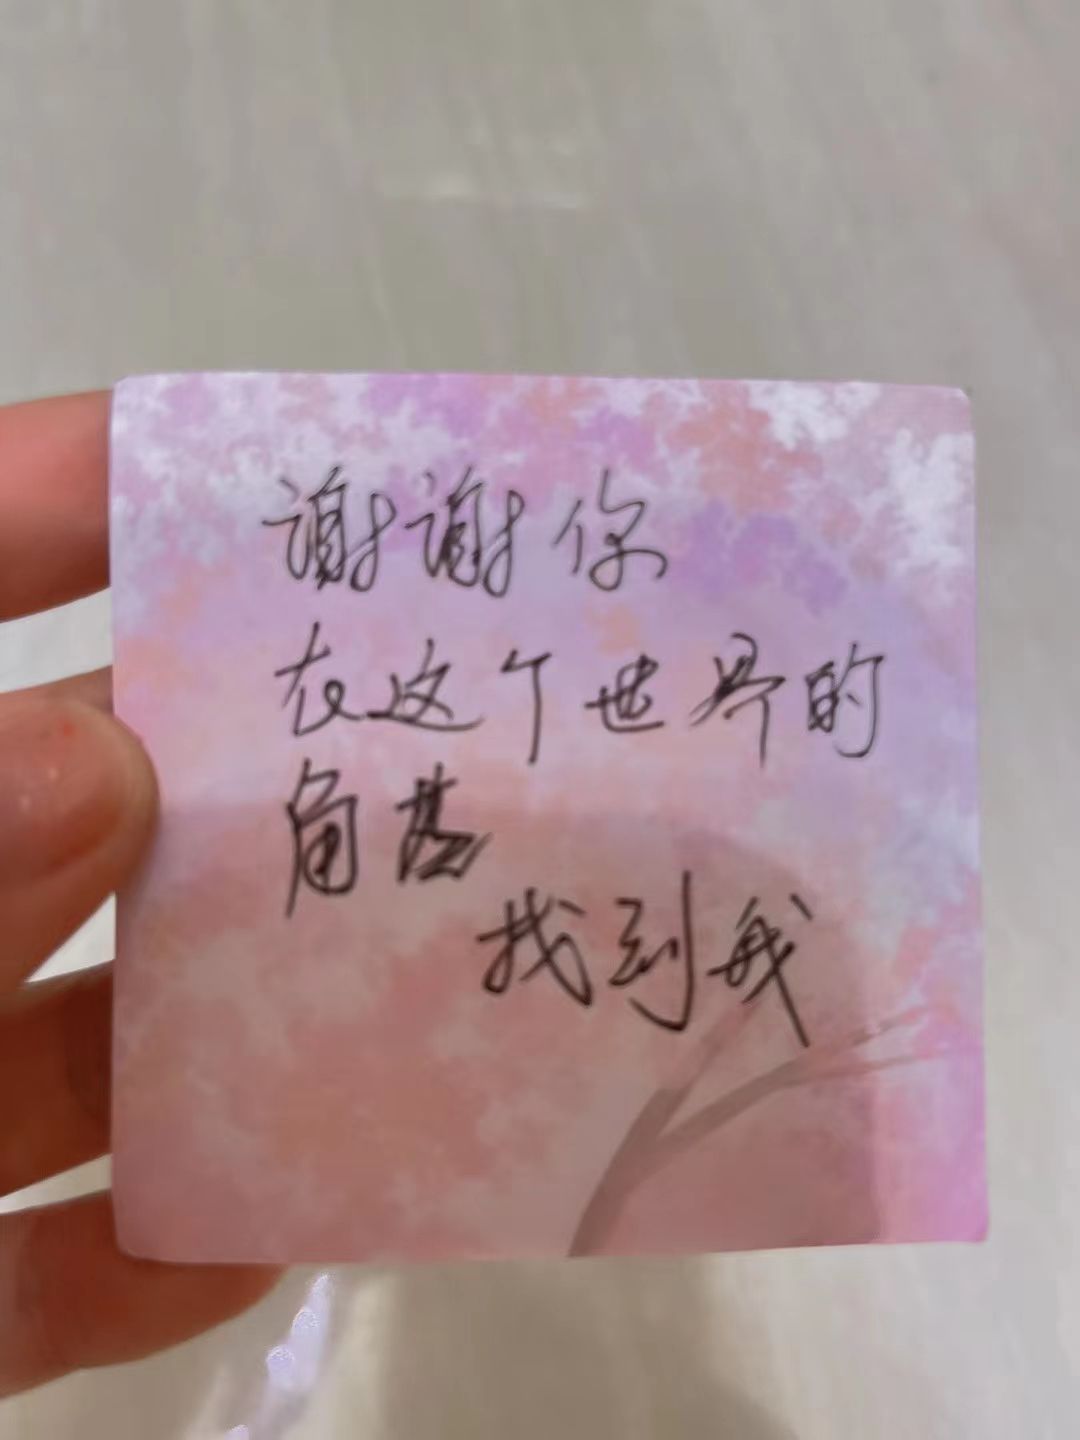 谢谢你
在这个世界的
角落
找到我